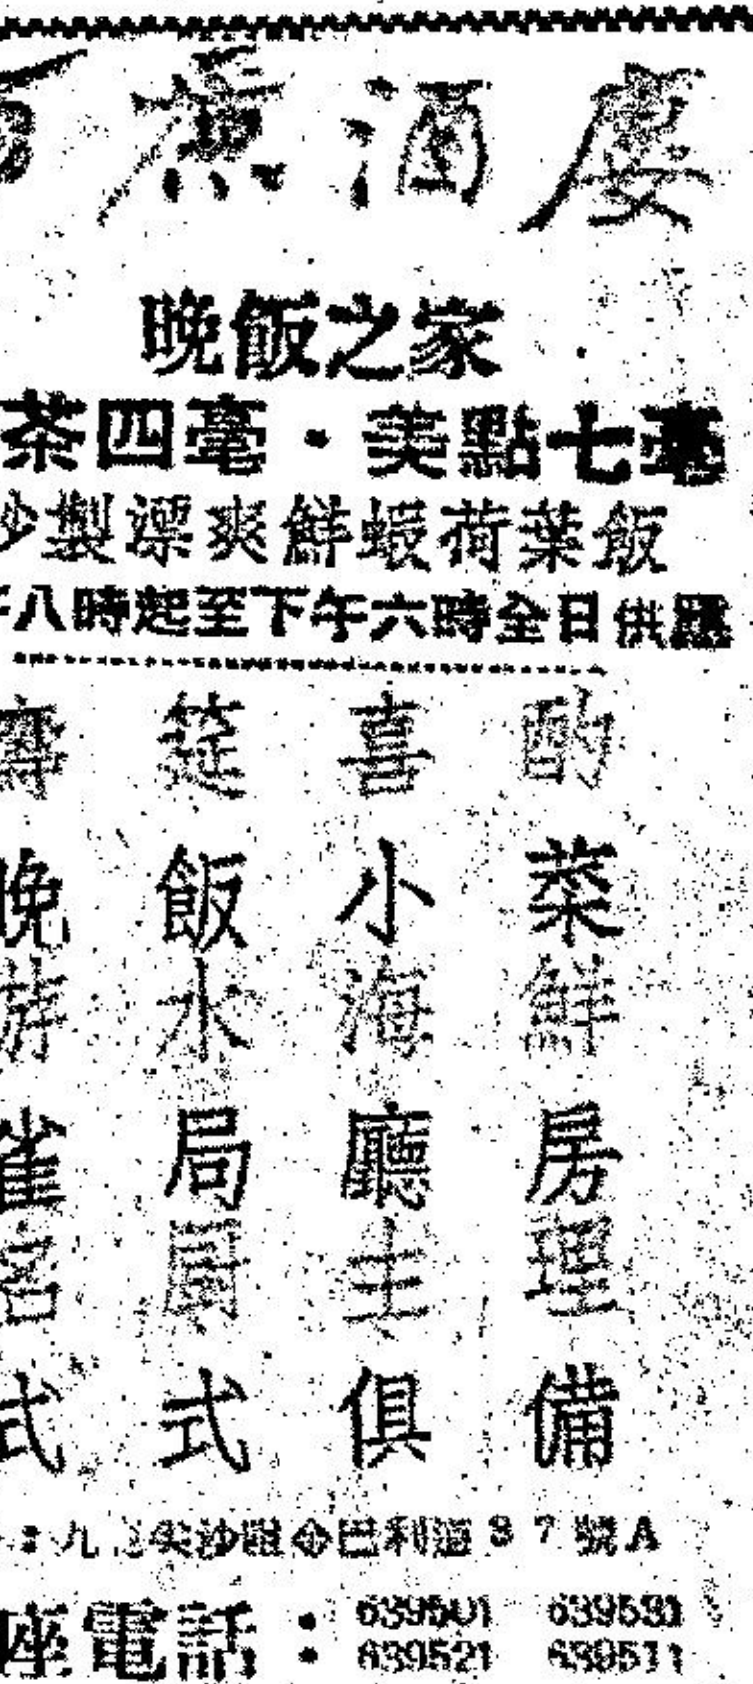 蔗酒廔
晚飯之家
茶四毫・美點七毫
製潔爽鮮蝦荷葉飯
八時起至下午六時全日供應
壽筵喜酌
晚飯小菜
游水海鮮
雀局廳房
名厨主理
式式俱備
：九 尖沙咀金巴利道37號A
座電話：639501 639531
639521 639511